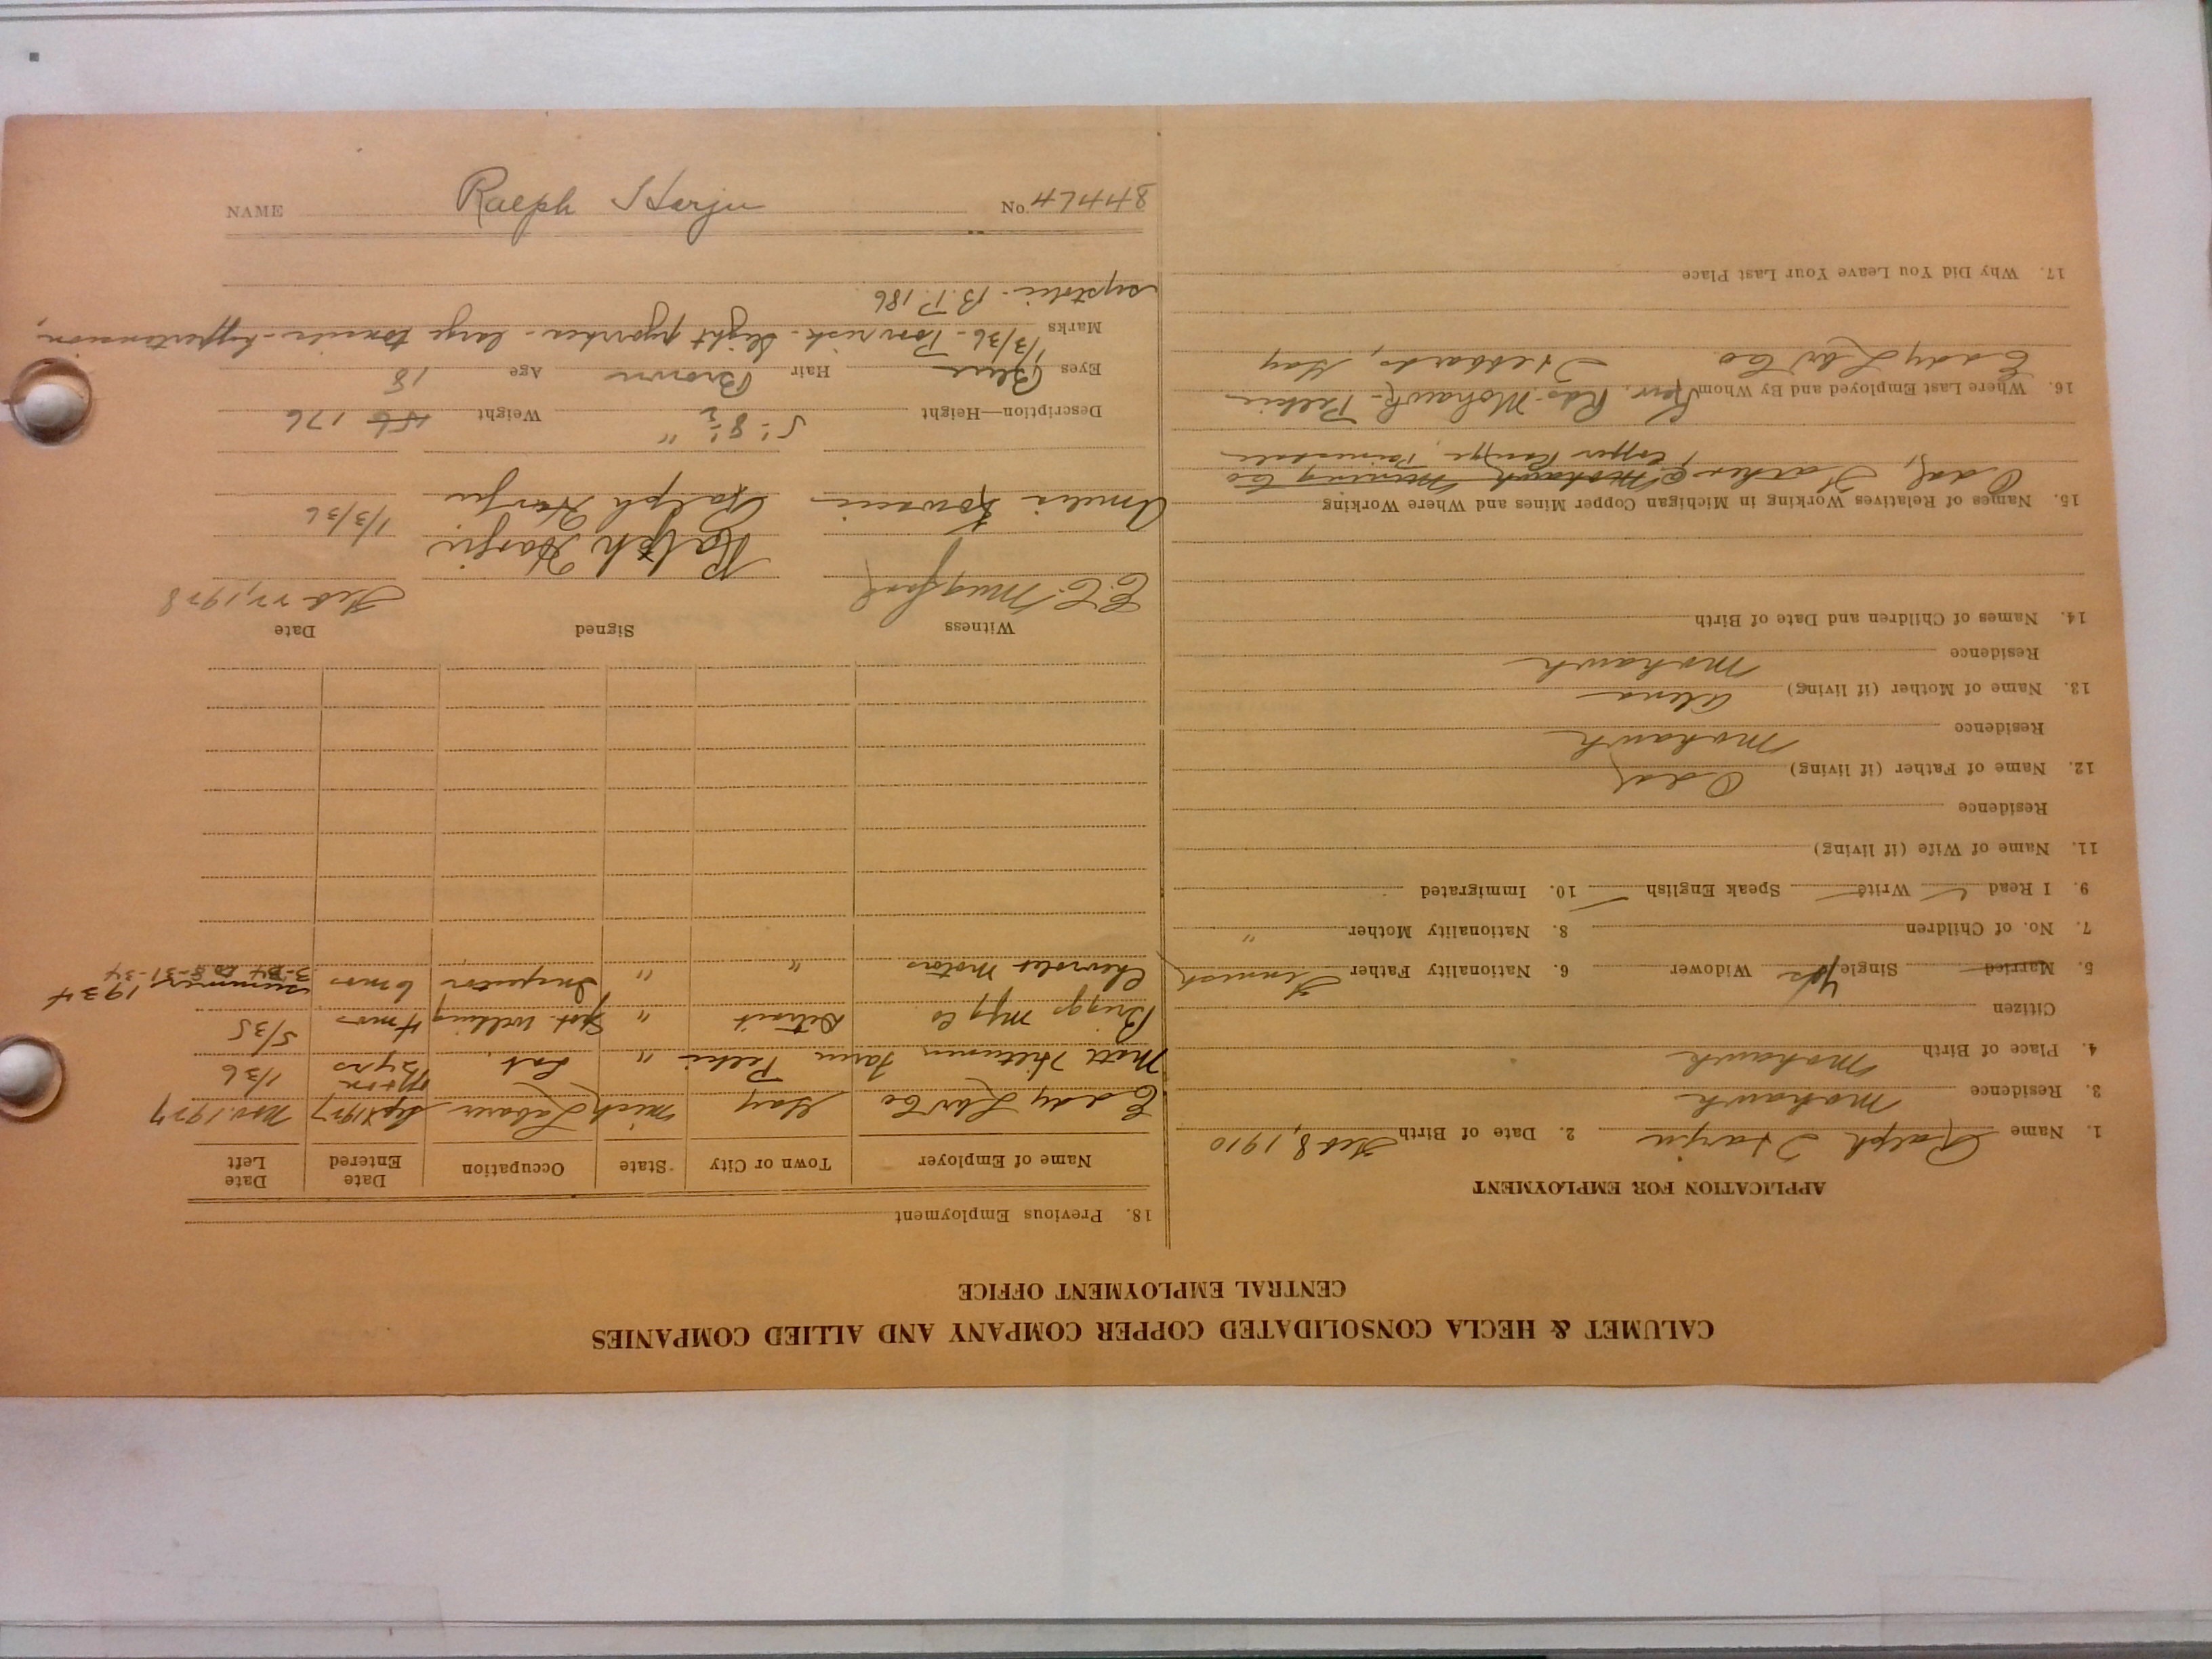 CALUMET & HECLA CONSOLIDATED COPPER COMPANY AND ALLIED COMPANIES
CENTRAL EMPLOYMENT OFFICE
APPLICATION FOR EMPLOYMENT
1. Name Ralph Harju 2. Date of Birth Feb 8, 1910
3. Residence Mohawk
4. Place of Birth Mohawk
Citizen
5. Married Single yes Widower 6. Nationality Father Finnish
7. No. of Children 8. Nationality Mother "
9. I Read Write Speak English 10. Immigrated
11. Name of Wife (if living)
Residence
12. Name of Father (if living) Odaf
Residence Mohawk
13. Name of Mother (if living) Alma
Residence Mohawk
14. Names of Children and Date of Birth
15. Names of Relatives Working in Michigan Copper Mines and Where Working
Odaf, Father @ Mohawk Mining Co
Copper Range, Painesdale
16. Where Last Employed and By Whom Kew. Rds. Mohawk - Pelkie
Eddy Lbr Co Hebards, Gay
17. Why Did You Leave Your Last Place
18. Previous Employment
Name of Employer Town or City State Occupation Date Entered Date Left
Eddy Lbr Co Gay Mich Laborer Sept 1927 Nov. 1927
Matt Hiltunen Farm Pelkie " Lab. 2 yrs 1/36
Briggs Mfg Co Detroit " Spot. Welding 4 mos 5/35
Chevrolet Motors " " Inspector 6 mos summer, 1934
3-34 to 8-31-34
Witness Signed Date
E.C. Mugford Ralph Harju Feb 27, 1928
Amelia Ralph Harju 1/3/36
Description—Height 5'-8 1/2" Weight 156 176
Eyes Blue Hair Brown Age 18
Marks 1/3/36 - Poor risk - slight pyorrhea - large tonsils - hypertension,
systolic - B.P. 186
NAME Ralph Harju No. 47448